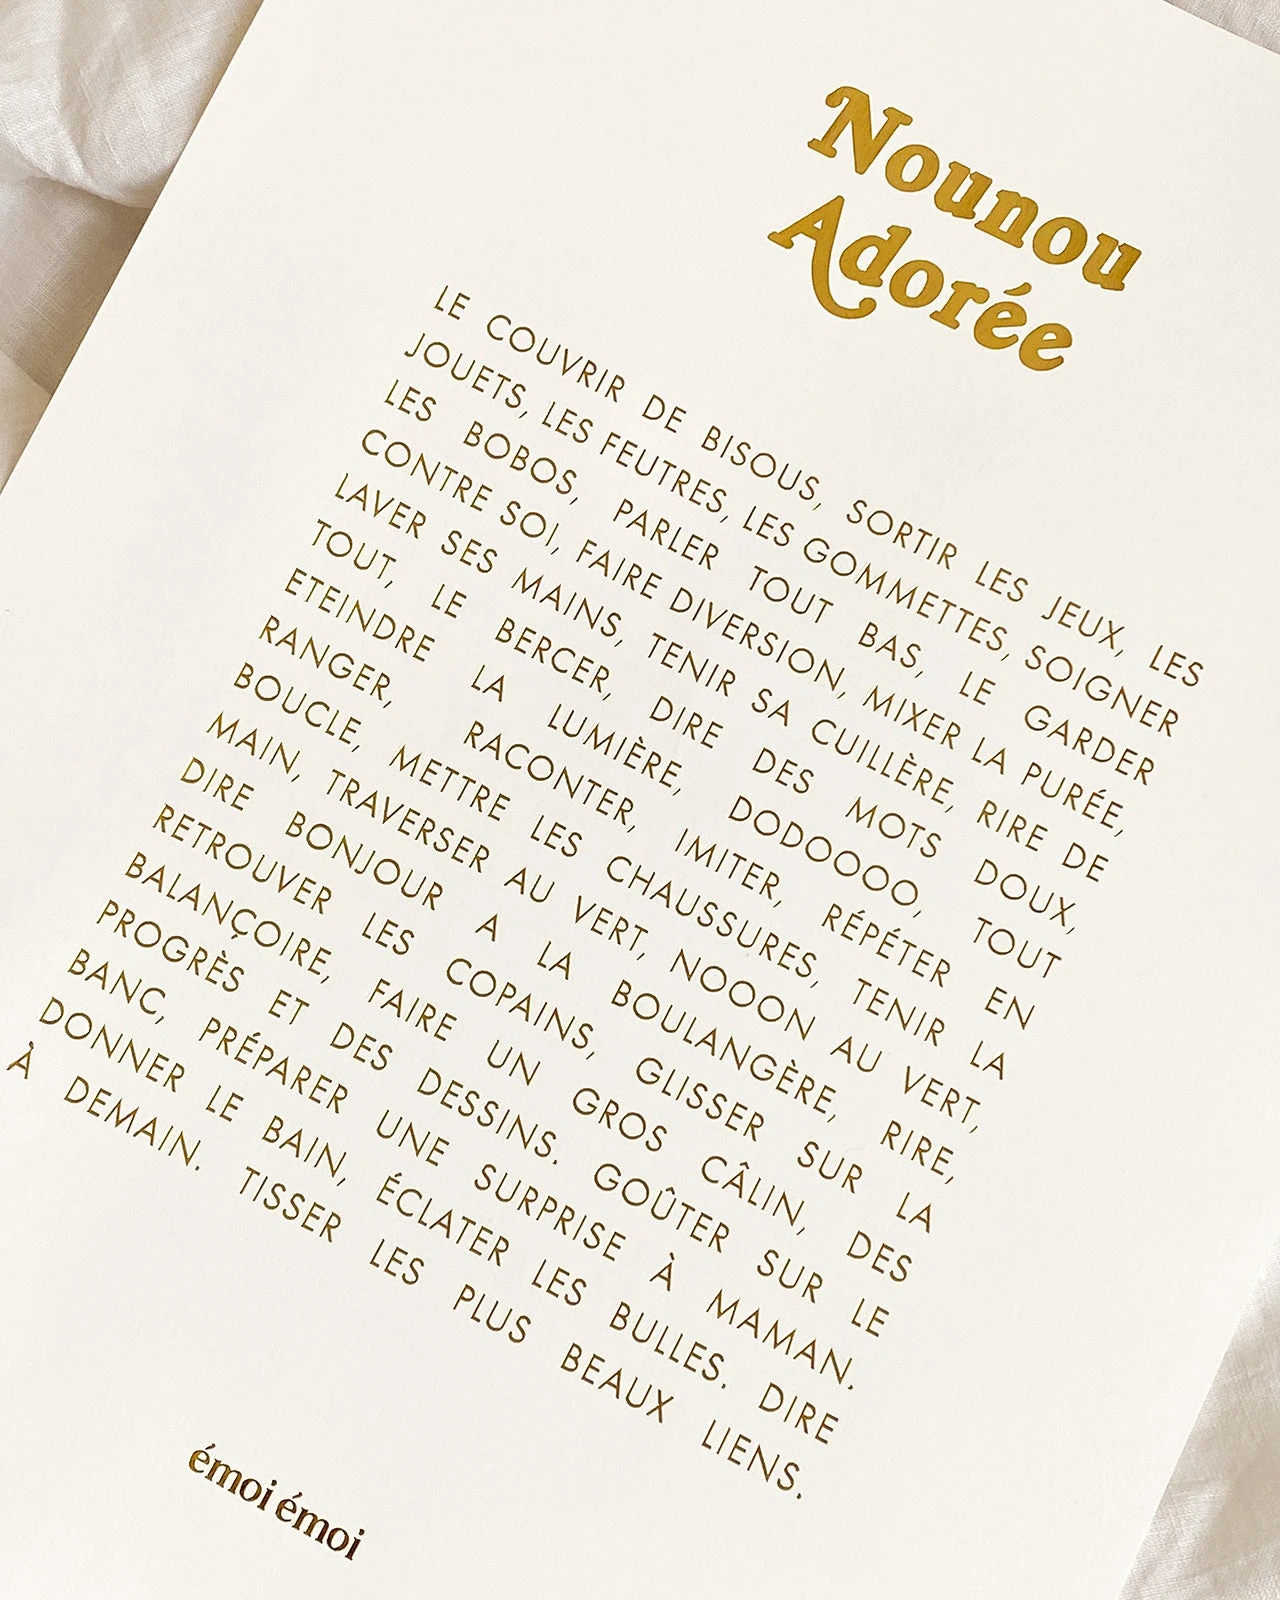 Nounou
Adorée
LE COUVRIR DE BISOUS, SORTIR LES JEUX, LES
JOUETS, LES FEUTRES, LES GOMMETTES, SOIGNER
LES BOBOS, PARLER TOUT BAS, LE GARDER
CONTRE SOI, FAIRE DIVERSION, MIXER LA PURÉE,
LAVER SES MAINS, TENIR SA CUILLÈRE, RIRE DE
TOUT, LE BERCER, DIRE DES MOTS DOUX,
ETEINDRE LA LUMIÈRE, DODOOOO, TOUT
RANGER, RACONTER, IMITER, RÉPÉTER EN
BOUCLE, METTRE LES CHAUSSURES, TENIR LA
MAIN, TRAVERSER AU VERT, NOOON AU VERT,
DIRE BONJOUR A LA BOULANGÈRE, RIRE,
RETROUVER LES COPAINS, GLISSER SUR LA
BALANÇOIRE, FAIRE UN GROS CÂLIN, DES
PROGRÈS ET DES DESSINS. GOÛTER SUR LE
BANC, PRÉPARER UNE SURPRISE À MAMAN.
DONNER LE BAIN, ÉCLATER LES BULLES. DIRE
À DEMAIN. TISSER LES PLUS BEAUX LIENS.
émoi émoi